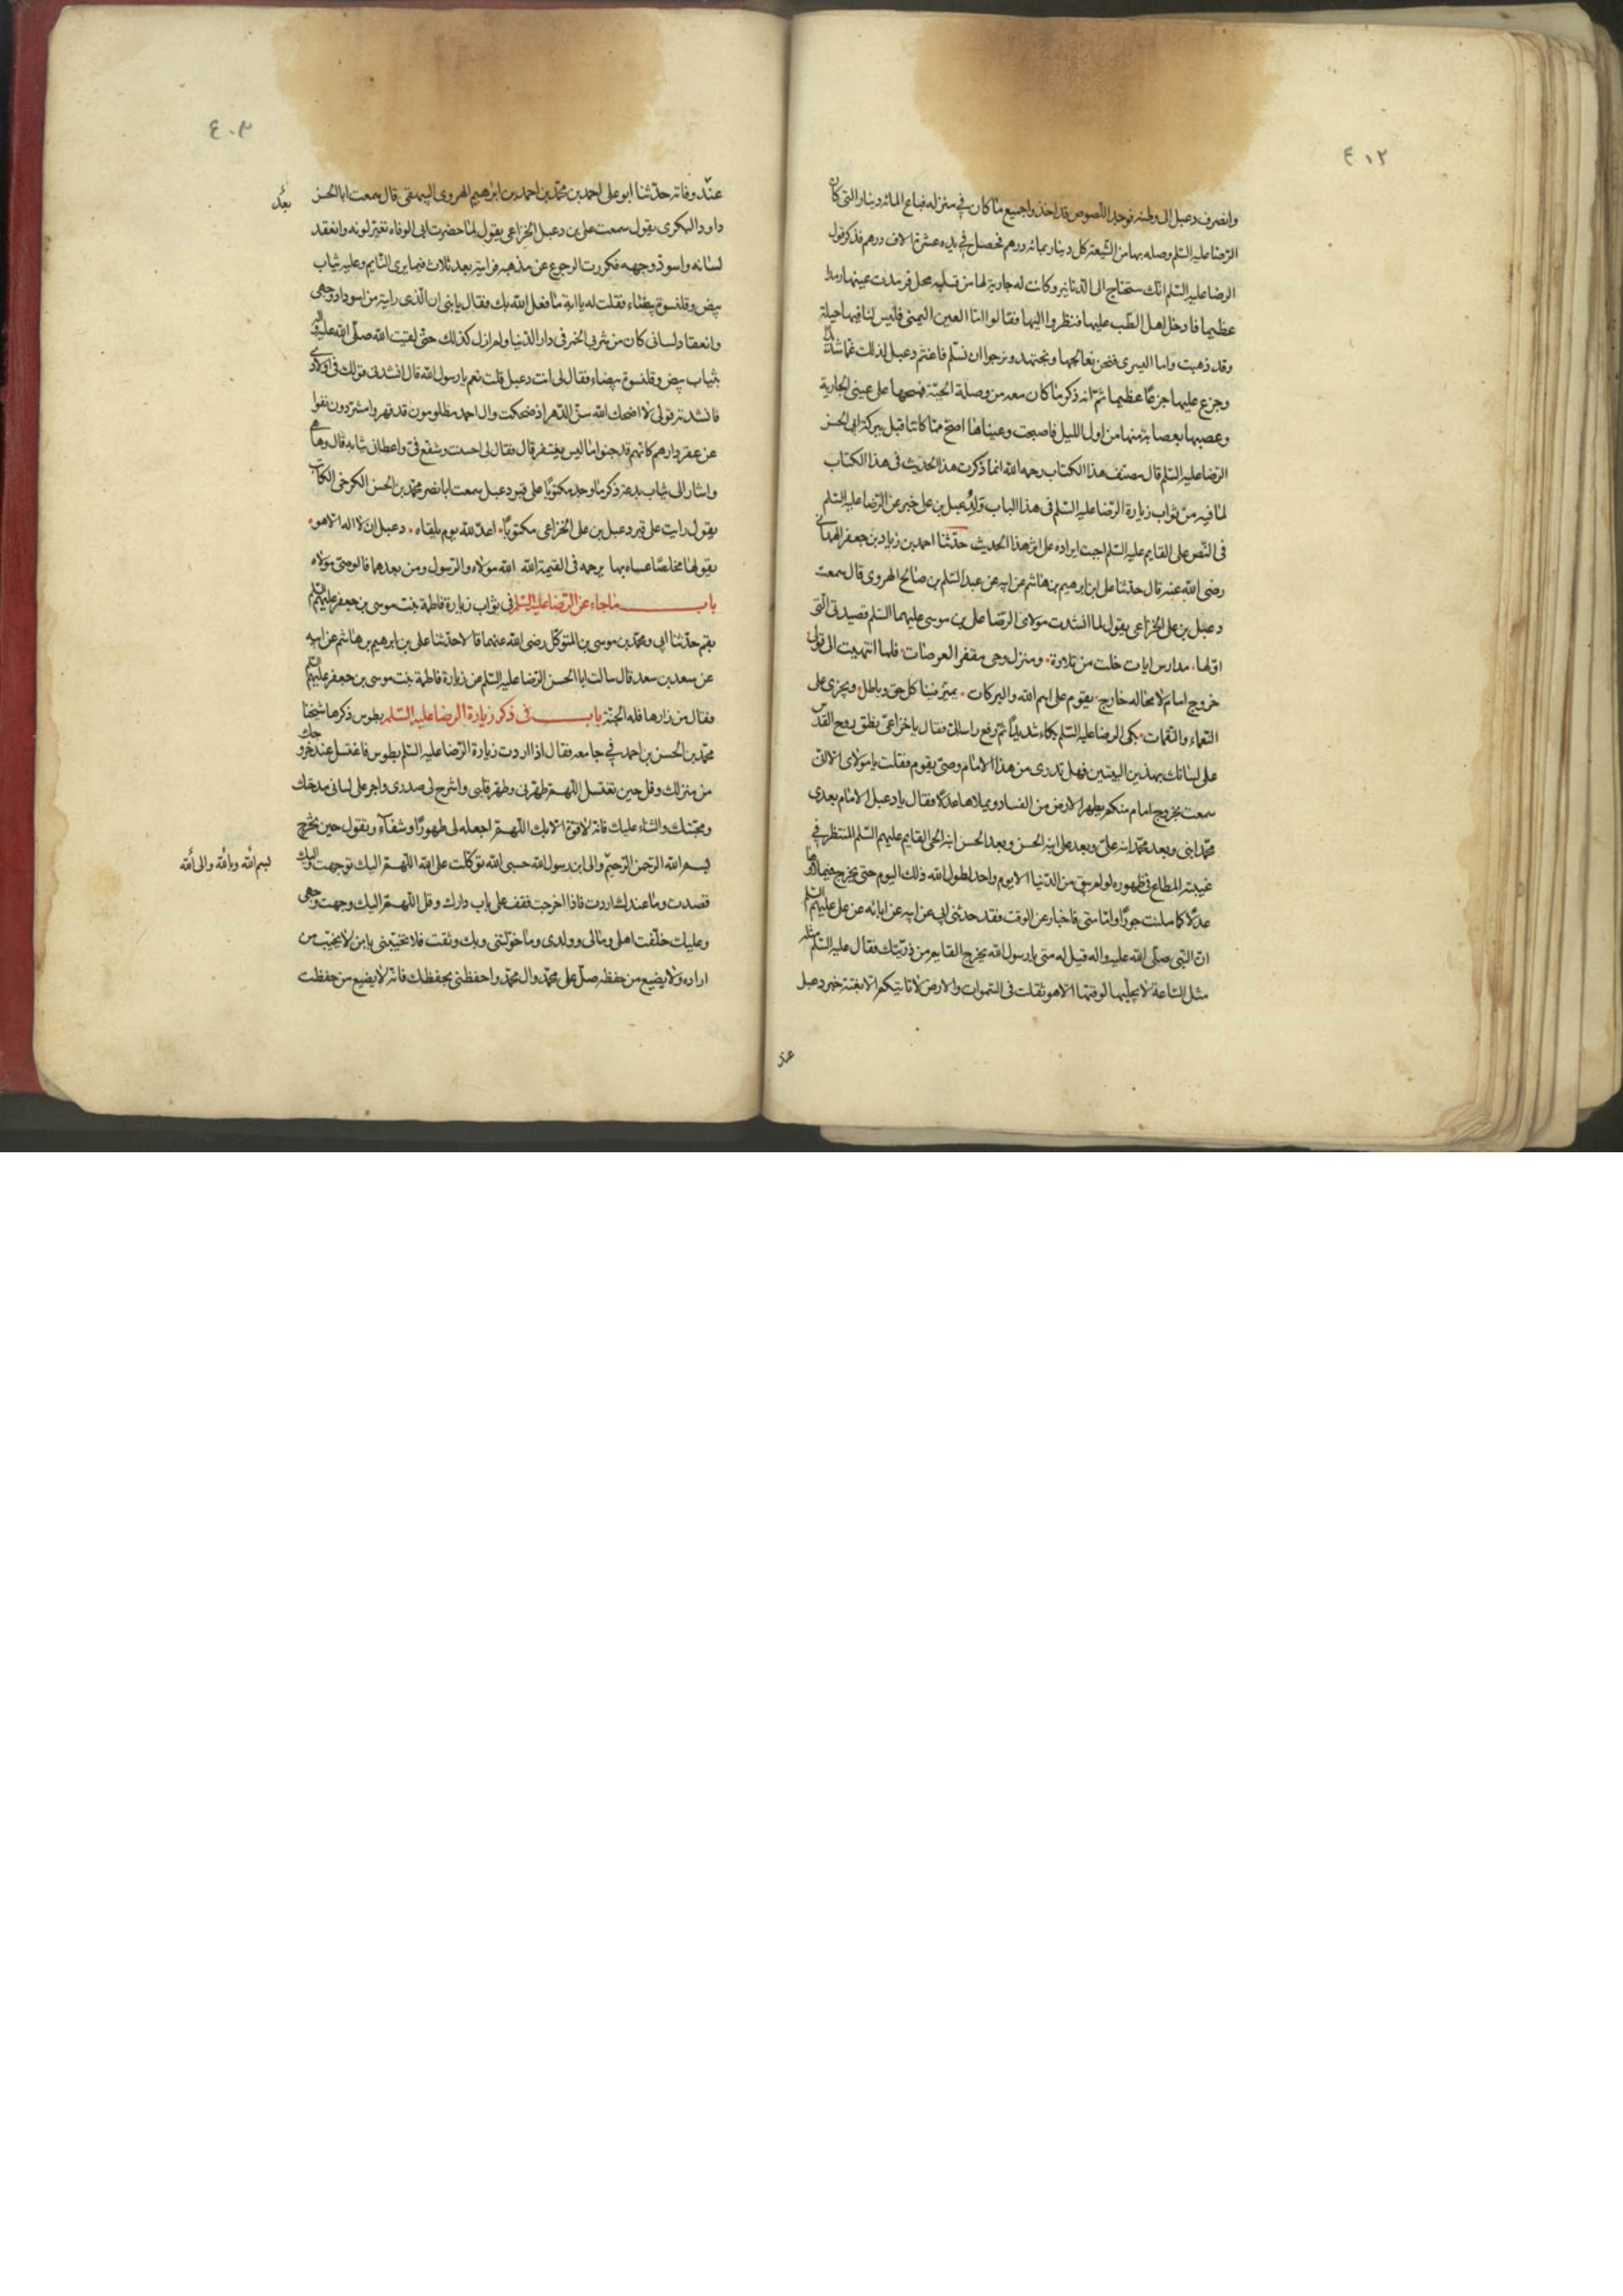 ٤١٢
وانصرف دعبل الى وطنه فوجد اللصوص قد اخذوا جميع ما كان في منزله فباع المائه دينار التى كان
الرضا عليه السلم وصله بها من الشيعة كل دينار بمائه درهم فحصل في يده عشرة الاف درهم فذكر قول
الرضا عليه السلم انك ستحتاج الى الدنانير وكانت له جارية لها من قلبه محل فرمدت عينها رمدا
عظيما فادخل اهل الطب عليها فنظروا اليها فقالوا اما العين اليمنى فليس لنا فيها حيلة
وقد ذهبت واما اليسرى فنحن نعالجها ونجتهد ونرجوا ان تسلم فاغتم دعبل لذلك غما شديدا
وجزع عليها جزعا عظيما ثم انه ذكر ما كان معه من وصلة الجبة فمسحها على عينى الجارية
وعصبها بعصابة منها من اول الليل فاصبحت وعيناها اصح مما كانتا قبل ببركة ابى الحسن
الرضا عليه السلم قال مصنف هذا الكتاب رحمه الله انما ذكرت هذا الحديث فى هذا الكتاب
لما فيه من ثواب زيارة الرضا عليه السلم فى هذا الباب ولدعبل بن على خبر عن الرضا عليه السلم
فى النص على القايم عليه السلم احببت ايراده على اثر هذا الحديث حدثنا احمد بن زياد بن جعفر الهمدانى
رضى الله عنه قال حدثنا على بن ابرهيم بن هاشم عن ابيه عن عبد السلم بن صالح الهروى قال سمعت
دعبل بن على الخزاعى يقول لما انشدت مولاى الرضا على بن موسى عليهما السلم قصيدتى التى
اولها مدارس ايات خلت من تلاوة ومنزل وحى مقفر العرصات فلما انتهيت الى قولى
خروج امام لا محاله خارج يقوم على اسم الله والبركات يميز فينا كل حق وباطل ويجزى على
النعماء والنقمات بكى الرضا عليه السلم بكاء شديدا ثم رفع راسه الى فقال يا خزاعى نطق روح القدس
على لسانك بهذين البيتين فهل تدرى من هذا الامام ومتى يقوم فقلت يا مولاى الا انى
سمعت بخروج امام منكم يطهر الارض من الفساد ويملاها عدلا فقال يا دعبل الامام بعدى
محمد ابنى وبعد محمد ابنه على وبعد على ابنه الحسن وبعد الحسن ابنه الحجة القايم عليهم السلم المنتظر في
غيبته المطاع فى ظهوره لو لم يبق من الدنيا الا يوم واحد لطول الله ذلك اليوم حتى يخرج فيملاها
عدلا كما ملئت جورا واما متى فاخبار عن الوقت فقد حدثنى ابى عن ابيه عن ابائه عن على عليهم السلم
ان النبى صلى الله عليه واله قيل له متى يا رسول الله يخرج القايم من ذريتك فقال عليه السلم مثله
مثل الساعة لا يجليها لوقتها الا هو ثقلت فى السموات والارض لا تاتيكم الا بغتة خبر دعبل
عند
٤٠٣
عند وفاته حدثنا ابو على احمد بن محمد بن احمد بن ابرهيم الهروى البيهقى قال سمعت ابا الحسن
داود البكرى يقول سمعت على بن دعبل الخزاعى يقول لما حضرت ابى الوفاه تغير لونه وانعقد
لسانه واسود وجهه فكررت الرجوع عن مذهبه فرايته بعد ثلاث فيما يرى النايم وعليه ثياب
بيض وقلنسوة بيضاء فقلت له يا ابة ما فعل الله بك فقال يا بنى ان الذى رايته من اسوداد وجهى
وانعقاد لسانى كان من شربى الخمر فى دار الدنيا ولم ازل كذلك حتى لقيت الله صلى الله عليه واله
بثياب بيض وقلنسوة بيضاء فقال لى انت دعبل قلت نعم يا رسول الله قال انشدنى قولك فى اولادى
فانشدته قولى لا اضحك الله سن الدهر اذ ضحكت وال احمد مظلومون قد قهروا مشردون نفوا
عن عقر دارهم كانهم قد جنوا ما ليس يغتفر قال فقال لى احسنت وشفع فى واعطانى ثيابه قال وها هى
واشار الى ثياب بدنه ذكر ما وجد مكتوبا على قبر دعبل سمعت ابا نصر محمد بن الحسن الكرخى الكاتب
يقول رايت على قبر دعبل بن على الخزاعى مكتوبا اعد لله يوم يلقاه دعبل ان لا اله الا هو
يقولها مخلصا عساه بها يرحمه فى القيمة الله الله مولاه والرسول ومن بعدهما فالوصى مولاه
باب ما جاء عن الرضا عليه السلم فى ثواب زيارة فاطمة بنت موسى بن جعفر عليهم السلم
بقم حدثنا ابى ومحمد بن موسى بن المتوكل رضى الله عنهما قالا حدثنا على بن ابرهيم بن هاشم عن ابيه
عن سعد بن سعد قال سالت ابا الحسن الرضا عليه السلم عن زيارة فاطمة بنت موسى بن جعفر عليهم السلم
فقال من زارها فله الجنة باب فى ذكر زيارة الرضا عليه السلم بطوس ذكرها شيخنا
محمد بن الحسن بن احمد في جامعه فقال اذا اردت زيارة الرضا عليه السلم بطوس فاغتسل عند خروجك
من منزلك وقل حين تغتسل اللهم طهرنى وطهر قلبى واشرح لى صدرى واجر على لسانى مدحتك
ومحبتك والثناء عليك فانه لا قوة الا بك اللهم اجعله لى طهورا وشفاء وتقول حين تخرج
بسم الله الرحمن الرحيم والى ابن رسول الله حسبى الله توكلت على الله اللهم اليك توجهت واليك
بسم الله وبالله والى الله
قصدت وما عندك اردت فاذا خرجت فقف على باب دارك وقل اللهم اليك وجهت وجهى
وعليك خلفت اهلى ومالى وولدى وما خولتنى وبك وثقت فلا تخيبنى يا من لا يخيب من
اراده ولا يضيع من حفظه صل على محمد وال محمد واحفظنى بحفظك فانه لا يضيع من حفظت